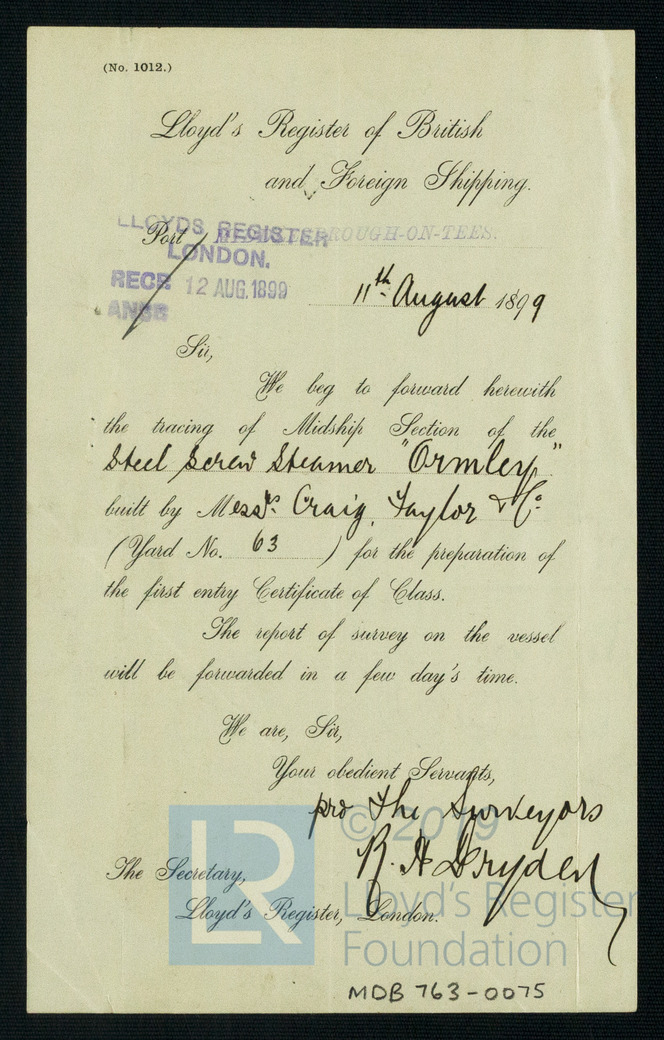 (No. 1012.)
Lloyd's Register of British
and Foreign Shipping.
LLOYDS REGISTER
Port MIDDLESBROUGH-ON-TEES.
LONDON.
RECD 12 AUG. 1899
ANSD
11th August 1899
Sir,
We beg to forward herewith
the tracing of Midship Section of the
Steel Screw Steamer "Ormley"
built by Messrs. Craig, Taylor & Co
(Yard No. 63 ) for the preparation of
the first entry Certificate of Class.
The report of survey on the vessel
will be forwarded in a few day's time.
We are, Sir,
Your obedient Servants,
pro The Surveyors
R. H. Dryden
The Secretary,
Lloyd's Register, London.
LR
© 2019
Lloyd's Register
Foundation
MDB 763-0075